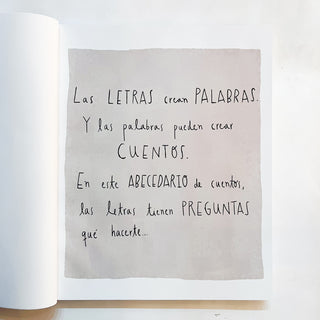 Las LETRAS crean PALABRAS.
Y las palabras pueden crear
CUENTOS.
En este ABECEDARIO de cuentos,
las letras tienen PREGUNTAS
que hacerte...